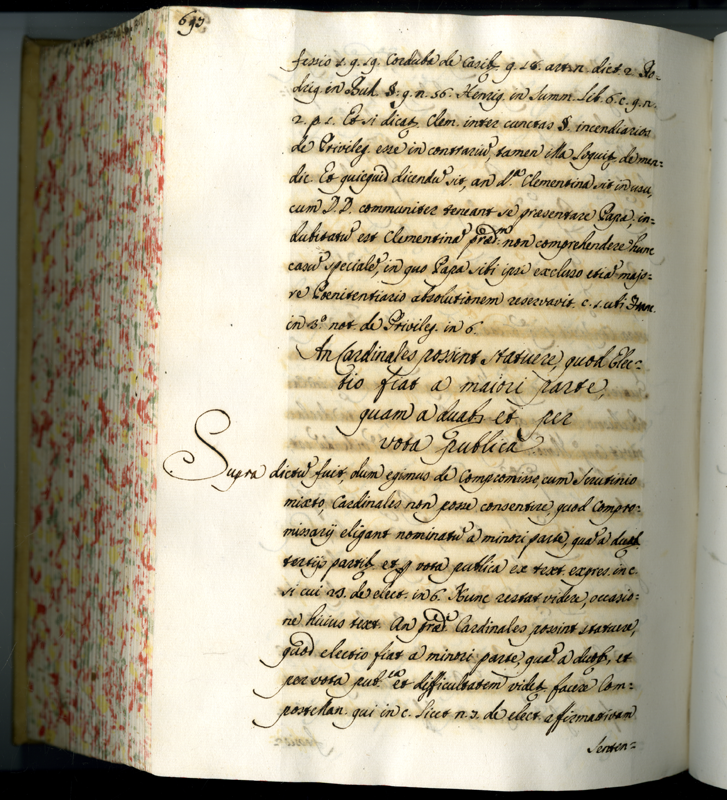 693
fessio 1. q. 19. Corduba de Casib. q. 18. art. n. dict. 2. Ro=
drig in Bull. §. 9. n. 56. Henriq. in Summ. Lib. 6. c. 9. n.
2. p. 1. Et si dicat. Clem. inter cunctas §. incendiarios
de Privileg. esse in contrariũ, tamen illa loquit. de men=
dic. Et quicquid dicendũ sit, an d.ª Clementina sit in usu,
cum D.D. communiter teneant se præsentare Papa, in=
dubitatũ est Clementinã præd.m non comprehendere hunc
casũ specialẽ, in quo Papa sibi ipsi excluso etiã majo=
re Pœnitentiario absolutionem reservavit. c. 1. ubi
in 3.º not. de Privileg. in 6.
An Cardinales possint statuere, quod Elec=
tio fiat a maiori parte,
quam a duab. et per
vota publica
Supra dictũ fuit, dum egimus de Compromisso, cum Scrutinio
mixto, Cardinales non posse consentire, quod Compro=
missarij eligant nominatũ a minori parte, quã a duab.
tertijs partib. et p vota publica ex text. expres. in c.
si cui 23. de elect. in 6. Nunc restat videre, occasio=
ne huius text. An præd. Cardinales possint statuere,
quod electio fiat a minori parte, quã a duab. et
per vota pub.ca et difficultatem videt. facere Com=
postellan. qui in c. licet n. 3. de elect. affirmativam
Senten=